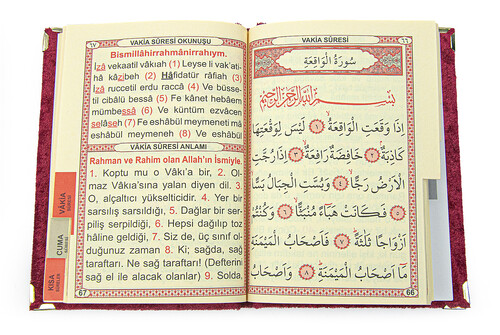 ٦٧
VAKİA SÛRESİ OKUNUŞU
Bismillâhirrahmânirrahıym.
İzâ vekaatil vâkıah (1) Leyse li vak'ati-
hâ kâzibeh (2) Hâfidatür râfiah (3)
İzâ ruccetil erdu raccâ (4) Ve büsse-
til cibâlü bessâ (5) Fe kânet hebâem
mümbessâ (6) Ve küntüm ezvâcen
selâseh (7) Fe eshâbül meymeneti mâ
eshâbül meymeneh (8) Ve eshâbül
VAKİA SÛRESİ ANLAMI
Rahman ve Rahim olan Allah'ın İsmiyle.
1. Koptu mu o Vâkı'a bir, 2. Ol-
maz Vâkıa'sına yalan diyen dil. 3.
O, alçaltıcı yükselticidir. 4. Yer bir
sarsılış sarsıldığı, 5. Dağlar bir ser-
piliş serpildiği, 6. Hepsi dağılıp toz
hâline geldiği, 7. Siz de, üç sınıf ol-
duğunuz zaman 8. Ki; sağda, sağ
taraftarı. Ne sağ taraftarı! (Defterini
sağ el ile alacak olanlar) 9. Solda,
67
VAKİA
SÛRESİ
CUMA
SÛRESİ
KISA
SÛRELER
VAKİA SÛRESİ
٦٦
سُورَةُ الْوَاقِعَةِ
بِسْمِ اللّٰهِ الرَّحْمٰنِ الرَّحِيمِ
اِذَا وَقَعَتِ الْوَاقِعَةُ ﴿١﴾ لَيْسَ لِوَقْعَتِهَا
كَاذِبَةٌ ﴿٢﴾ خَافِضَةٌ رَافِعَةٌ ﴿٣﴾ اِذَا رُجَّتِ
الْاَرْضُ رَجًّا ﴿٤﴾ وَبُسَّتِ الْجِبَالُ بَسًّا
﴿٥﴾ فَكَانَتْ هَبَٓاءً مُنْبَثًّا ﴿٦﴾ وَكُنْتُمْ
اَزْوَاجًا ثَلٰثَةً ﴿٧﴾ فَاَصْحَابُ الْمَيْمَنَةِ
مَٓا اَصْحَابُ الْمَيْمَنَةِ ﴿٨﴾ وَاَصْحَابُ
66